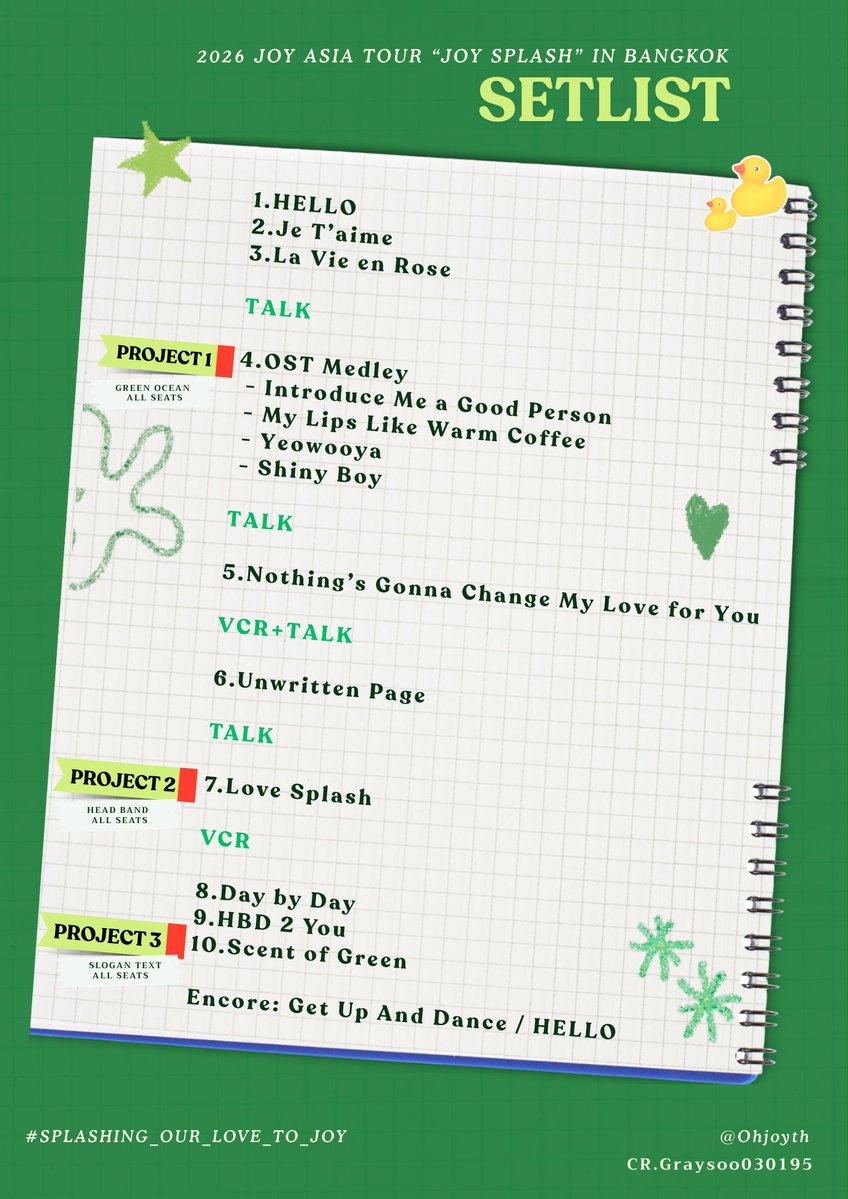 2026 JOY ASIA TOUR “JOY SPLASH” IN BANGKOK
SETLIST
1.HELLO
2.Je T’aime
3.La Vie en Rose
TALK
PROJECT 1
GREEN OCEAN
ALL SEATS
4.OST Medley
- Introduce Me a Good Person
- My Lips Like Warm Coffee
- Yeowooya
- Shiny Boy
TALK
5.Nothing’s Gonna Change My Love for You
VCR+TALK
6.Unwritten Page
TALK
PROJECT 2
HEAD BAND
ALL SEATS
7.Love Splash
VCR
8.Day by Day
9.HBD 2 You
PROJECT 3
SLOGAN TEXT
ALL SEATS
10.Scent of Green
Encore: Get Up And Dance / HELLO
#SPLASHING_OUR_LOVE_TO_JOY
@Ohjoyth
CR.Graysoo030195